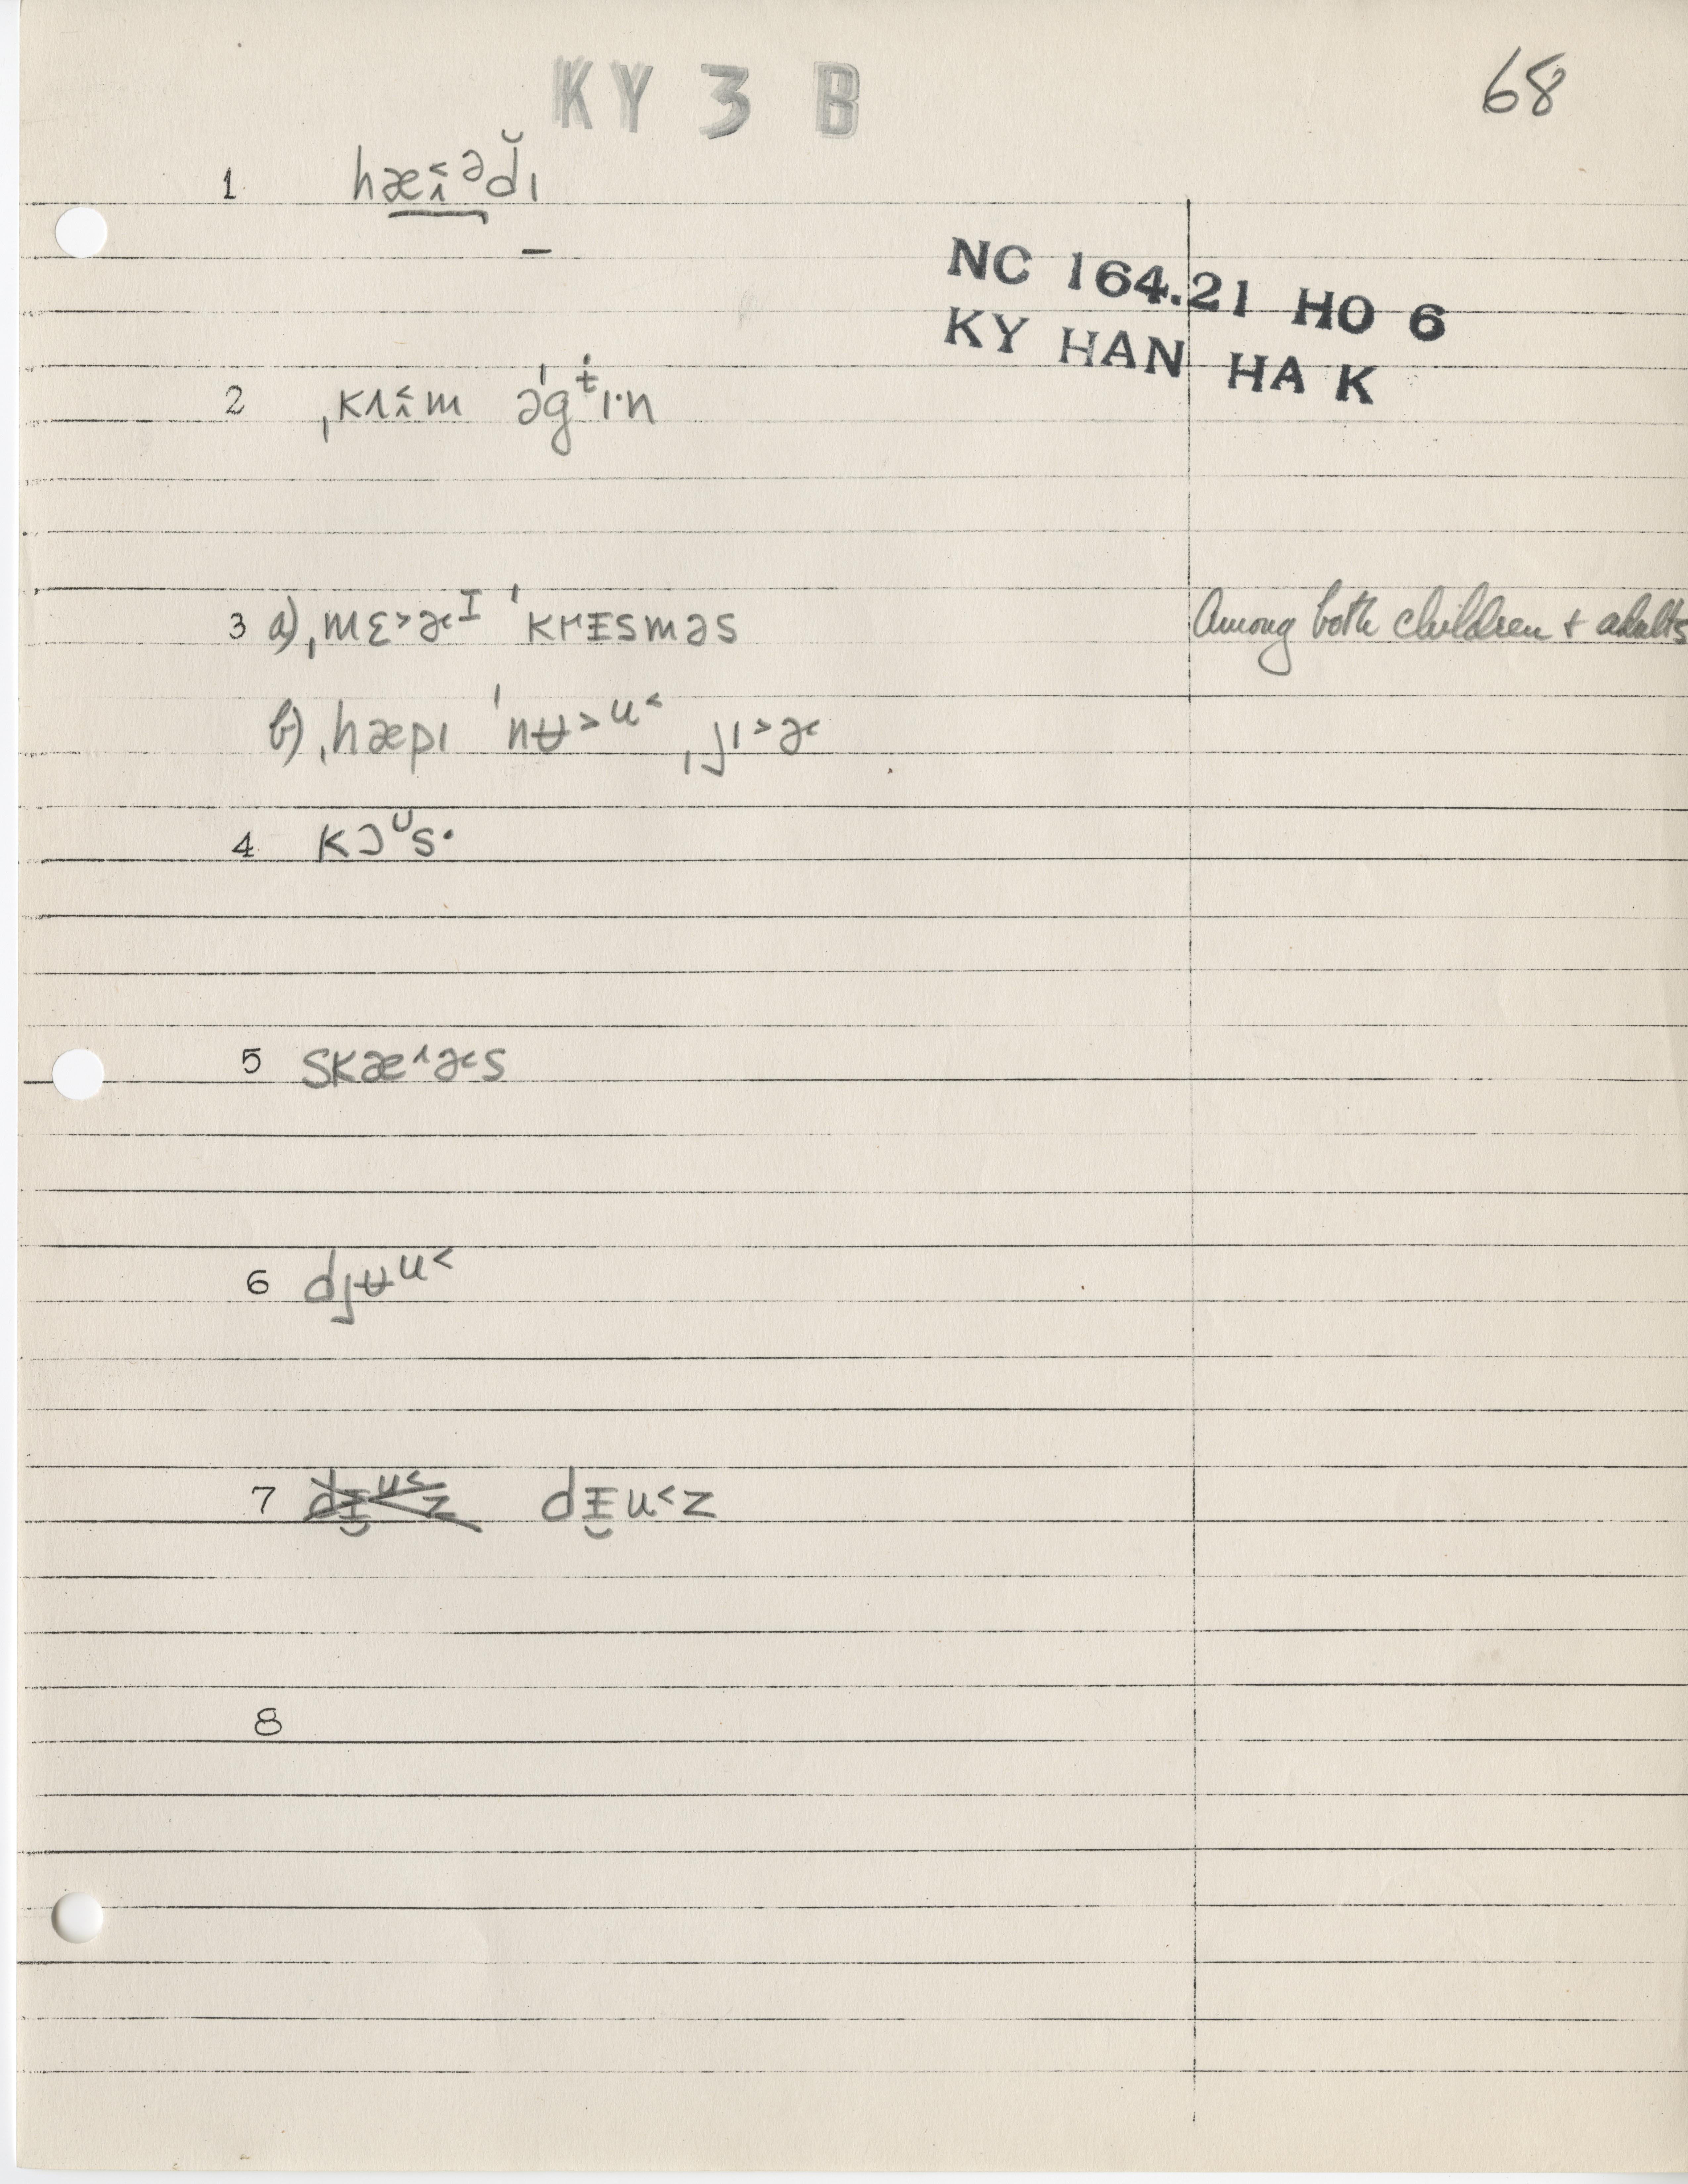 KY 3 B
68
1 hæɪ̂˂ᵊd̆ɪ
NC 164.21 HO 6
KY HAN HA K
2 ˌkʌɪ̂˂m əˈgᵗɪ·n
3 a) ˌmɛ˃ɚᴵ ˈkrɪsməs Among both children & adults
b) ˌhæpɪ ˈnʉ˃ᵘ˂ ˌjɪ˃ɚ
4 kɔᶷs·
5 skæ˄ɚs
6 djʉᵘ˂
7 dɪ̯u˂z
8